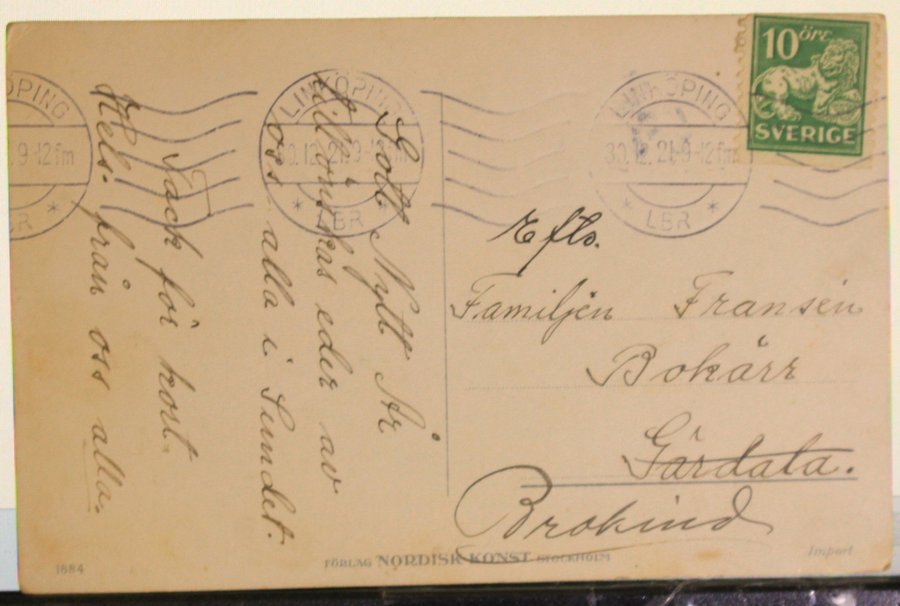 Gott Nytt År
tillönskas eder av
oss alla i Sundet.
Tack för kort.
Hels. från oss alla.
10 öre
SVERIGE
LINKÖPING
30.12.21.9-12 fm
* LBR *
LINKÖPING
30.12.21.9-12 fm
* LBR *
ÖPING
9-12 fm
BR *
Efts.
Familjen Fransén
Bokärr
Gärdala.
Brokind
1884
FÖRLAG NORDISK KONST STOCKHOLM
Import